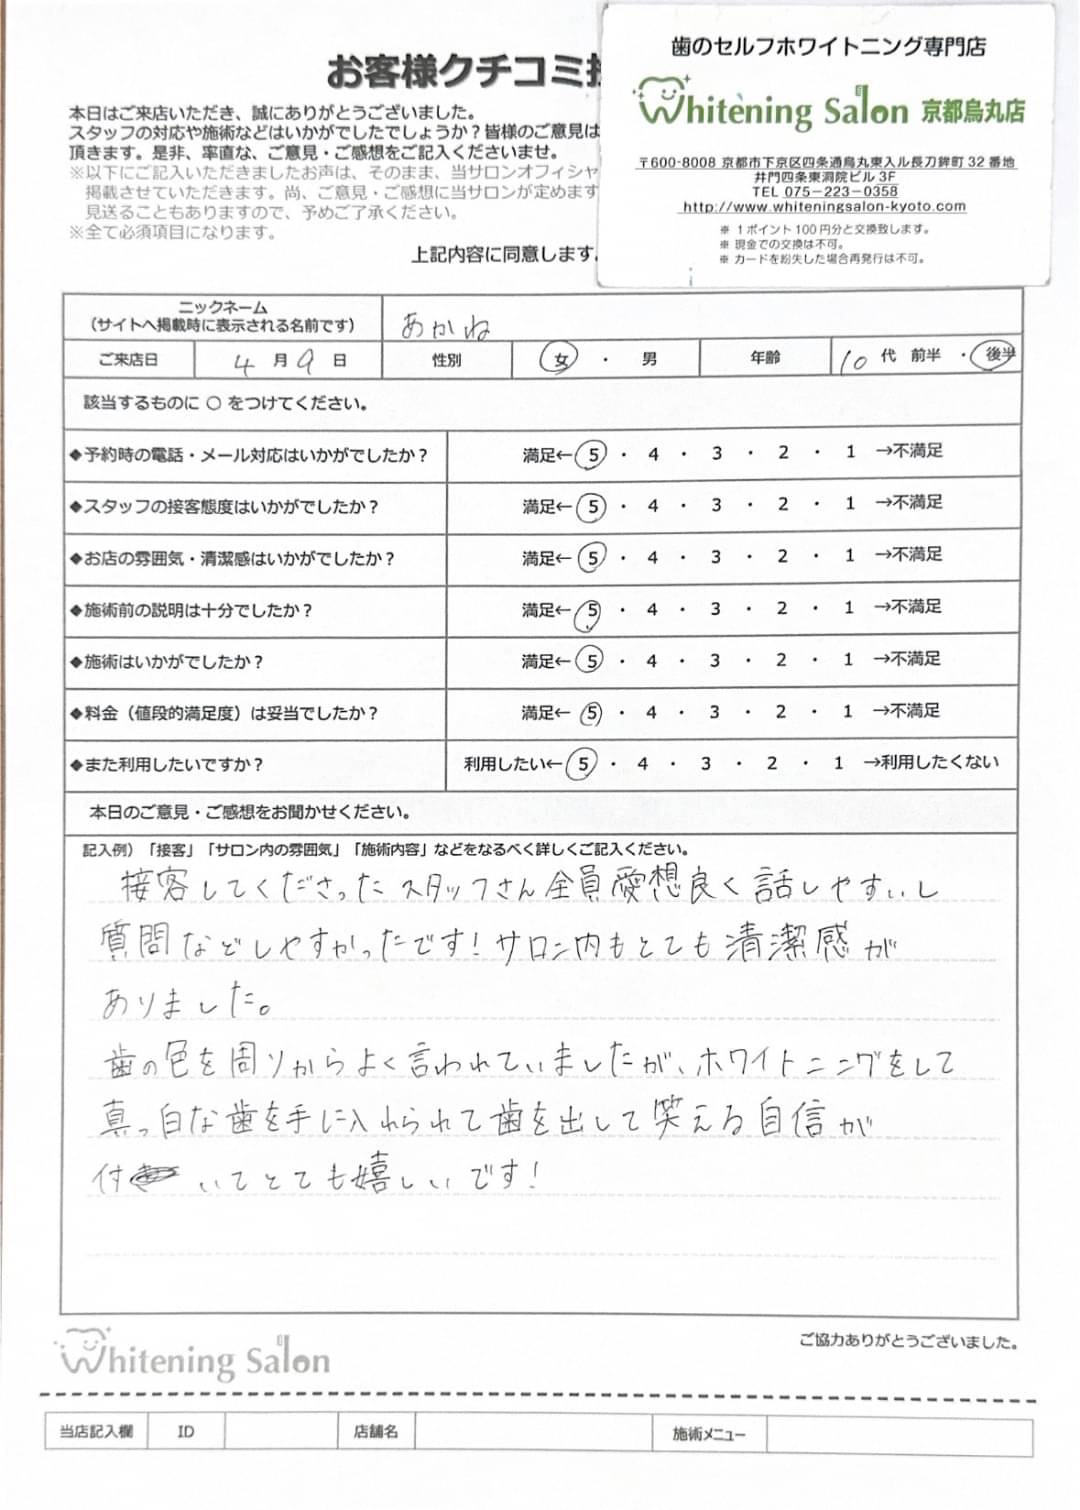 お客様クチコミ
本日はご来店いただき、誠にありがとうございました。
スタッフの対応や施術などはいかがでしたでしょうか？皆様のご意見は
頂きます。是非、率直な、ご意見・ご感想をご記入くださいませ。
※以下にご記入いただきましたお声は、そのまま、当サロンオフィシャ
掲載させていただきます。尚、ご意見・ご感想に当サロンが定めます
見送ることもありますので、予めご了承ください。
※全て必須項目になります。
上記内容に同意します。
歯のセルフホワイトニング専門店
Whitening Salon 京都烏丸店
〒600-8008 京都市下京区四条通烏丸東入ル長刀鉾町32番地
井門四条東洞院ビル3F
TEL 075-223-0358
http://www.whiteningsalon-kyoto.com
※ 1ポイント100円分と交換致します。
※ 現金での交換は不可。
※ カードを紛失した場合再発行は不可。
ニックネーム
（サイトへ掲載時に表示される名前です） あかね
ご来店日 4月9日 性別 女・男 年齢 10代 前半・後半
該当するものに○をつけてください。
◆予約時の電話・メール対応はいかがでしたか？ 満足←5・4・3・2・1→不満足
◆スタッフの接客態度はいかがでしたか？ 満足←5・4・3・2・1→不満足
◆お店の雰囲気・清潔感はいかがでしたか？ 満足←5・4・3・2・1→不満足
◆施術前の説明は十分でしたか？ 満足←5・4・3・2・1→不満足
◆施術はいかがでしたか？ 満足←5・4・3・2・1→不満足
◆料金（値段的満足度）は妥当でしたか？ 満足←5・4・3・2・1→不満足
◆また利用したいですか？ 利用したい←5・4・3・2・1→利用したくない
本日のご意見・ご感想をお聞かせください。
記入例）「接客」「サロン内の雰囲気」「施術内容」などをなるべく詳しくご記入ください。
接客してくださったスタッフさん全員愛想良く話しやすいし
質問などしやすかったです！サロン内もとても清潔感が
ありました。
歯の色を周りからよく言われていましたが、ホワイトニングをして
真っ白な歯を手に入れられて歯を出して笑える自信が
付いてとても嬉しいです！
Whitening Salon
ご協力ありがとうございました。
当店記入欄 ID 店舗名 施術メニュー